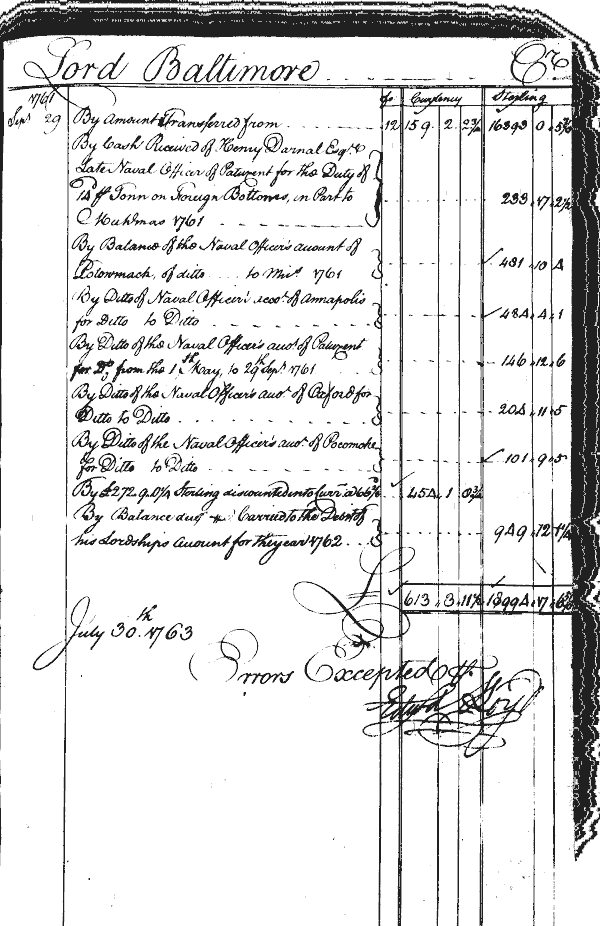 Lord Baltimore Cr
1761 fo Currency Sterling
Sepr 29 By Amount Transferred from 12 159 2 2¾ 16393 0
By Cash Received of Henry Darnal Esqr
Late Naval Officer of Patuxent for the Duty of
14d ⅌ Tonn on Foreign Bottoms, in Part to 233 17 2½
1761
By Balance of the Naval Officer's acount of
Potowmack, of ditto to 1761 431 10 4
By Ditto of Naval Officer's accot. of Annapolis
for Ditto to Ditto 484 4 1
By Ditto of the Naval Officer's acot. of Patuxent
for Do. from the 1st May, to 29th Sepr. 1761 146 12 6
By Ditto of the Naval Officer's acot. of Oxford for
Ditto to Ditto 204 11 5
By Ditto of the Naval Officer's acot. of Pocomoke
for Ditto to Ditto 101 9 5
By £272 9 0½ Sterling discounted into Curr: a 454 1 8¾
By Balance due Carried to the Debit of
his Lordships Account for the year 1762 949 12
613 3 11½ 18994 17
July 30th 1763
Errors Excepted ⅌.
Edwd Lloyd